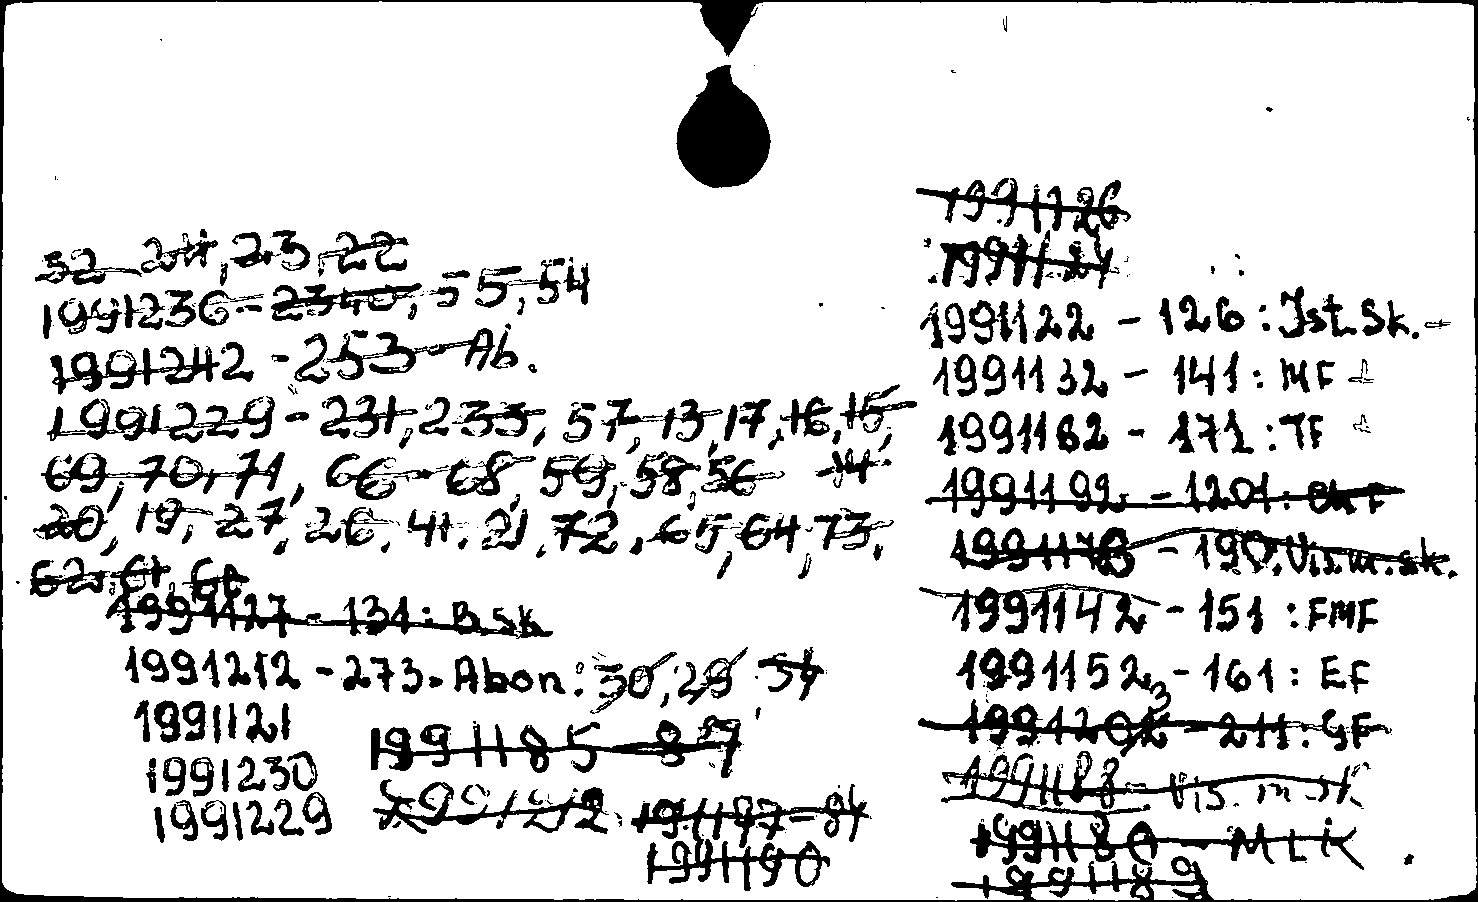 52 24, 23, 22
1991236 - 2340, 55, 54
1991242 - 253 - Ab.
1991229 - 231, 233, 57, 13, 17, 16, 15,
69, 70, 71, 66 - 68, 59, 58, 56 14
20, 19, 27, 26, 41, 21, 72, 65, 64, 73,
62, 61, 60
1991127 - 131: B.sk
1991212 - 273 - Abon: 30, 29 54
1991121
1991185 - 87
1991230
1991229
1991190
1991126
1991124
1991122 - 126: Jst.Sk. -
1991132 - 141: MF +
1991162 - 171: TF +
1991192 - 1201:
1991178 - 190. Vis.m.sk.
1991142 - 151: FMF
1991152 - 161: EF
- 211: GF
1991188 - Vis. m sk
1991180 - MLiK
1991189